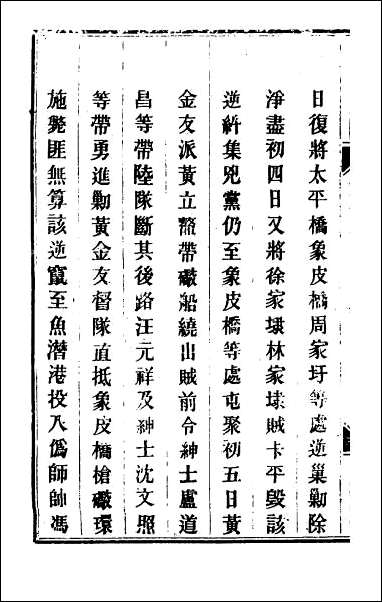 日復將太平橋象皮橋周家圩等處逆巢勦除
淨盡初四日又將徐家埭林家埭賊卡平毀該
逆紏集兇黨仍至象皮橋等處屯聚初五日黃
金友派黃立鰲帶礮船繞出賊前令紳士盧道
昌等帶陸隊斷其後路汪元祥及紳士沈文照
等帶勇進勦黃金友督隊直抵象皮橋槍礮環
施斃匪無算該逆竄至魚潛港役入僞師帥馮